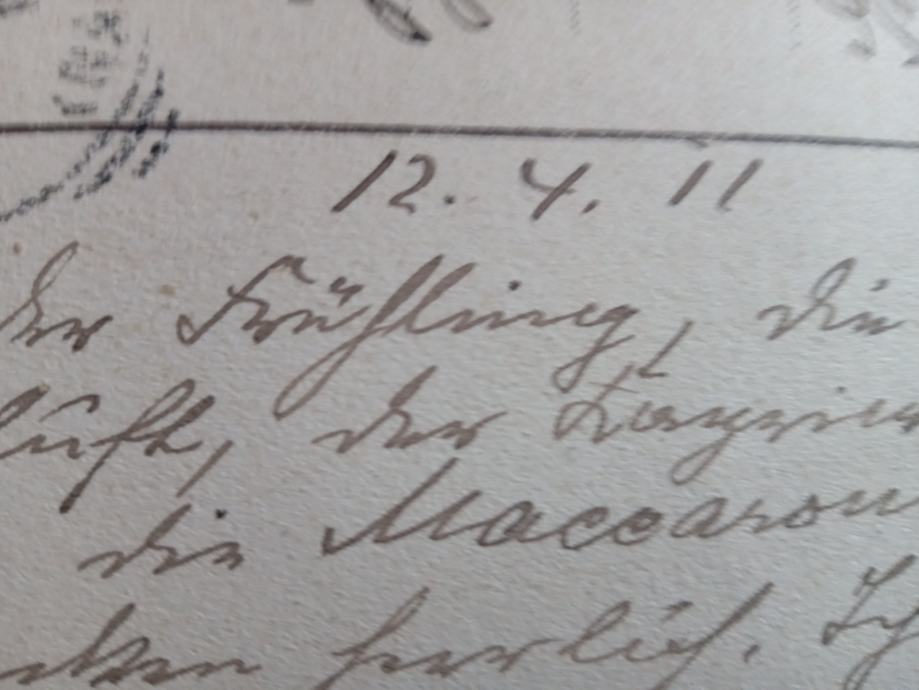 12. 4. 11
der Frühling, die
Luft, der
die Maccaron
herrlich. Ich